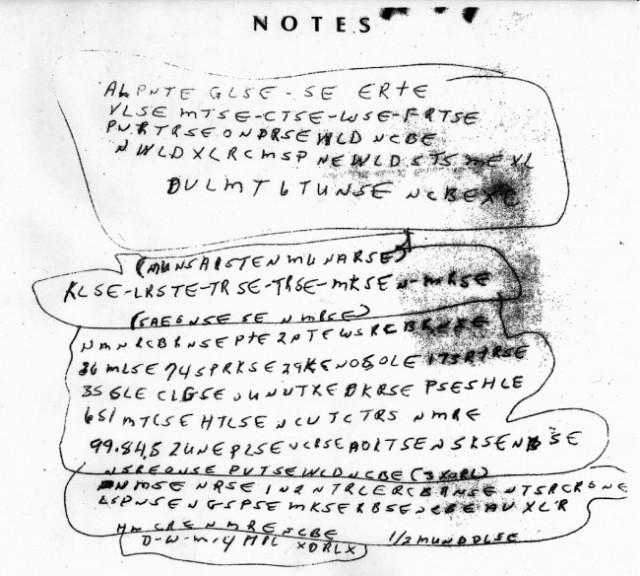 NOTES
ALPNTE GLSE-SE ERTE
VLSE MTSE-CTSE-WSE-FRTSE
PNRTRSE ONDRSE WLD NCBE
NWLDXLRCMSP NEWLD STS ME XL
DULMT 6 TUNSE NCBE XC
(MUNSARSTEN MUNARSE)
KLSE-LRSTE-TRSE-TRSE-MKSEN-MRSE
(SAEGNSE SE NMRSE)
NMNRCBRNSE PTE 2 PTE WSRCBRNSE
36 MLSE 74 SPRKSE 29 KENOSOLE 173 RTRSE
35 GLE CLGSE UNUTXE DKRSE PSESHLE
651 MTCSE HTLSE NCUTCTRS NMRE
99.84.5 2 UNE PLSE NCRSE AOLTSE NSKSE NBSE
NSREONSE PUTSE WLD NCBE (3 XORL)
NMSE NRSE IN2 NTRLERCBRNSE NTSRCRONE
LSPNSE NGSPSE MKSERBSE NCBE AUXLR
HM CRE NMRE NCBE
D-W-M-4 MPL XDRLX 1/2 MUNDDLSE